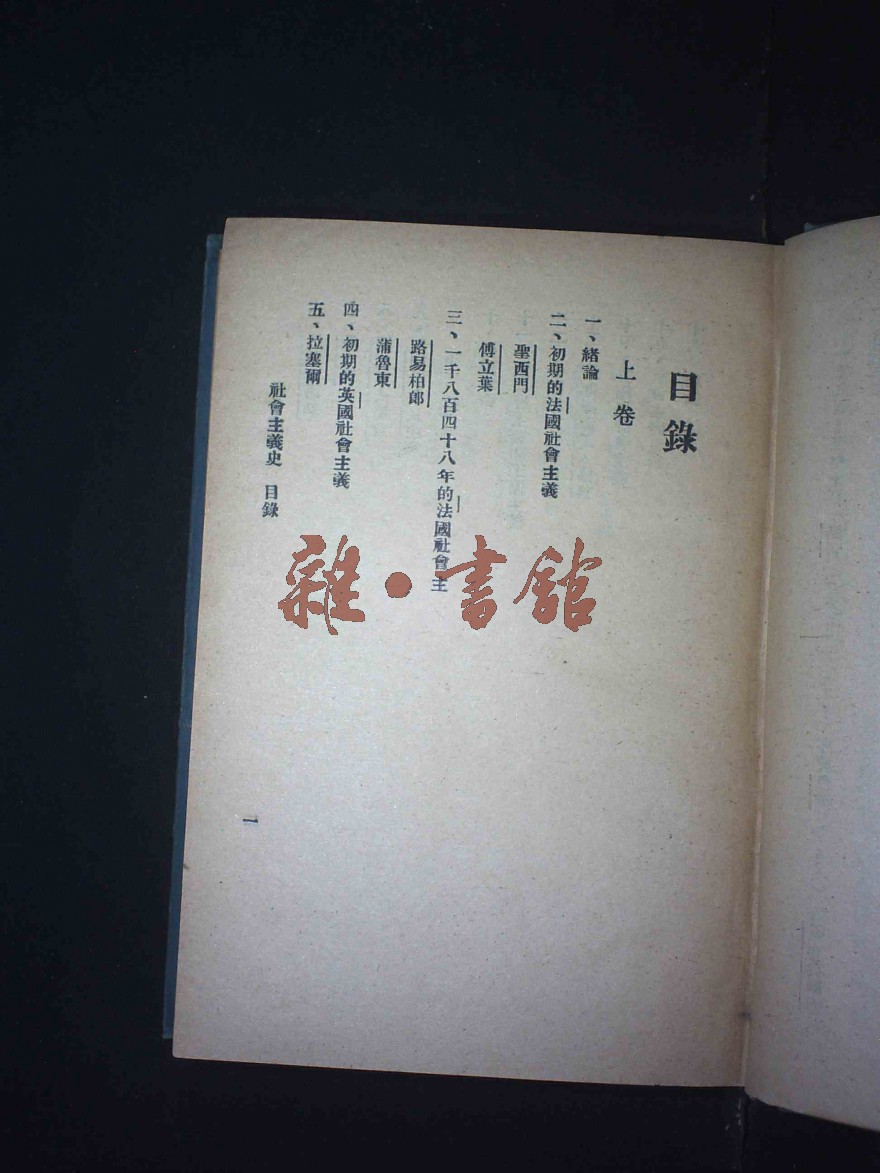 目錄
上卷
一、緒論
二、初期的法國社會主義
聖西門
傅立葉
三、一千八百四十八年的法國社會主
路易柏郎
蒲魯東
四、初期的英國社會主義
五、拉塞爾
社會主義史 目錄
一
雜·書館